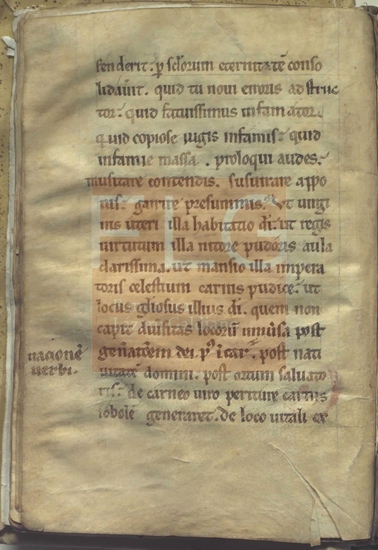 fenderit. p̱ sclorum eternitatē conso
lidauīt. quid tu noui erroris adstruc
tor. quid fatuissimus infamator.
quid copiose iugis infamis. quid
infamie massa. proloqui audes.
musitare contendis. susurrare appo
nis. garrire presummis. Vt uirgi
nis uteri illa habitatio di. ut regis
uirtutum illa nitore pudoris aula
clarissima. ut mansio illa impera
toris celestium carnis pudice. ut
locus gliosus illius di. quem non
capit diuisitas locorū inmēsa post
dei. post nati
nacionē
uerbi.
uitatē domini. post ortum saluato
ris. de carneo uiro periture carnis
sobolē generaret. de loco uitali ex